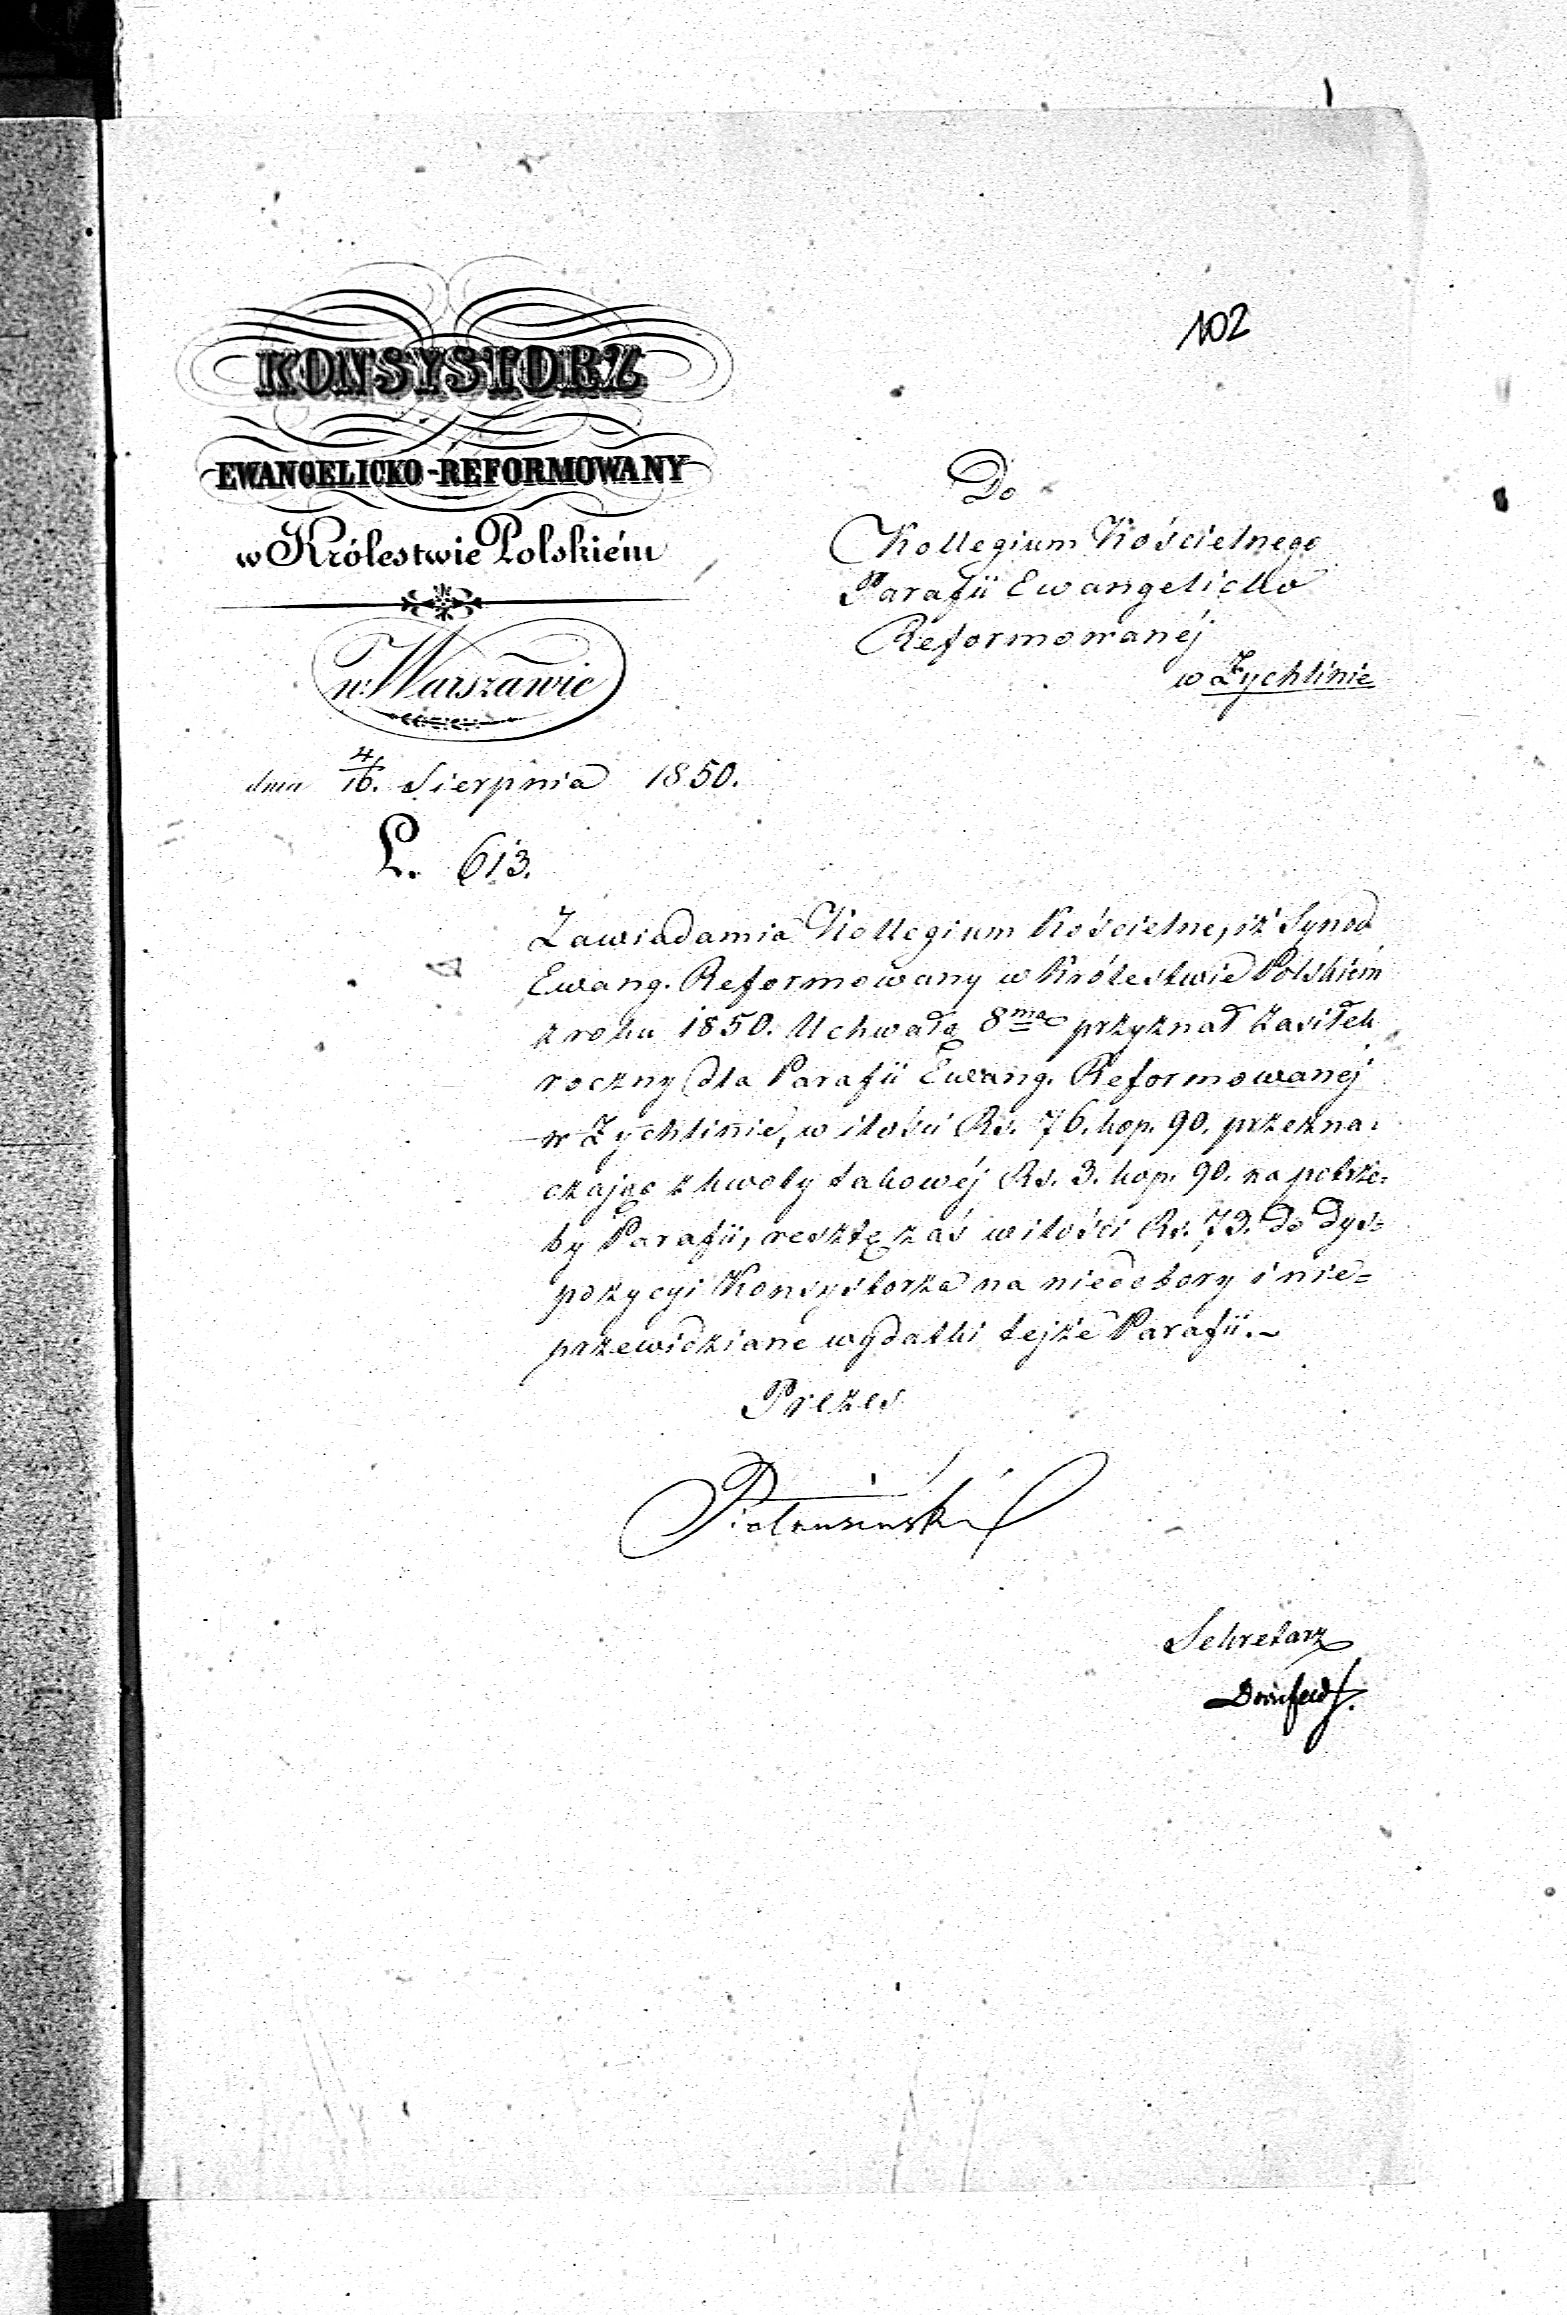 102
KONSYSTORZ
EWANGELICKO-REFORMOWANY
w Królestwie Polskiém
w Warszawie
dnia 4/16. Sierpnia 1850.
L. 613.
Do
Kollegium Kościelnego
Parafii Ewangelicko
Reformowanéj
w Żychlinie
Zawiadamia Kollegium Kościelne, iż Synod
Ewang. Reformowany w Królestwie Polskiém
z roku 1850. Uchwałą 8mą przyznał zasiłek
roczny dla Parafii Ewang. Reformowanéj
w Żychlinie, w ilości Rs. 76. kop. 90. przezna-
czając z kwoty takowéj Rs. 3. kop. 90. na potrze-
by Parafii, resztę zaś w ilości Rs. 73. do dys-
pozycyi Konsystorza na niedobory i nie-
przewidziane wydatki tejże Parafii.~
Prezes
Sekretarz